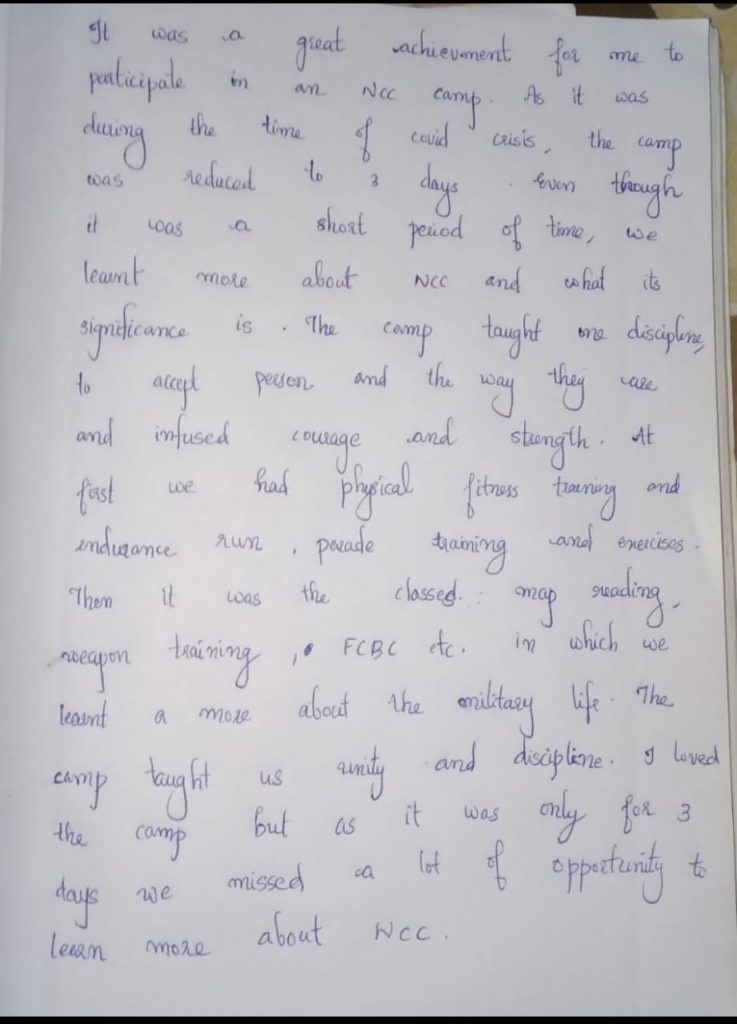 It was a great achievement for me to
participate in an NCC camp. As it was
during the time of covid crisis, the camp
was reduced to 3 days. Even though
it was a short period of time, we
learnt more about NCC and what its
significance is. The camp taught me discipline,
to accept person and the way they are
and infused courage and strength. At
first we had physical fitness traening and
endurance run, parade training and exercises.
Then it was the classed: map reading,
weapon training, FCBC etc. in which we
learnt a more about the military life. The
camp taught us unity and discipline. I loved
the camp but as it was only for 3
days we missed a lot of opportunity to
learn more about NCC.